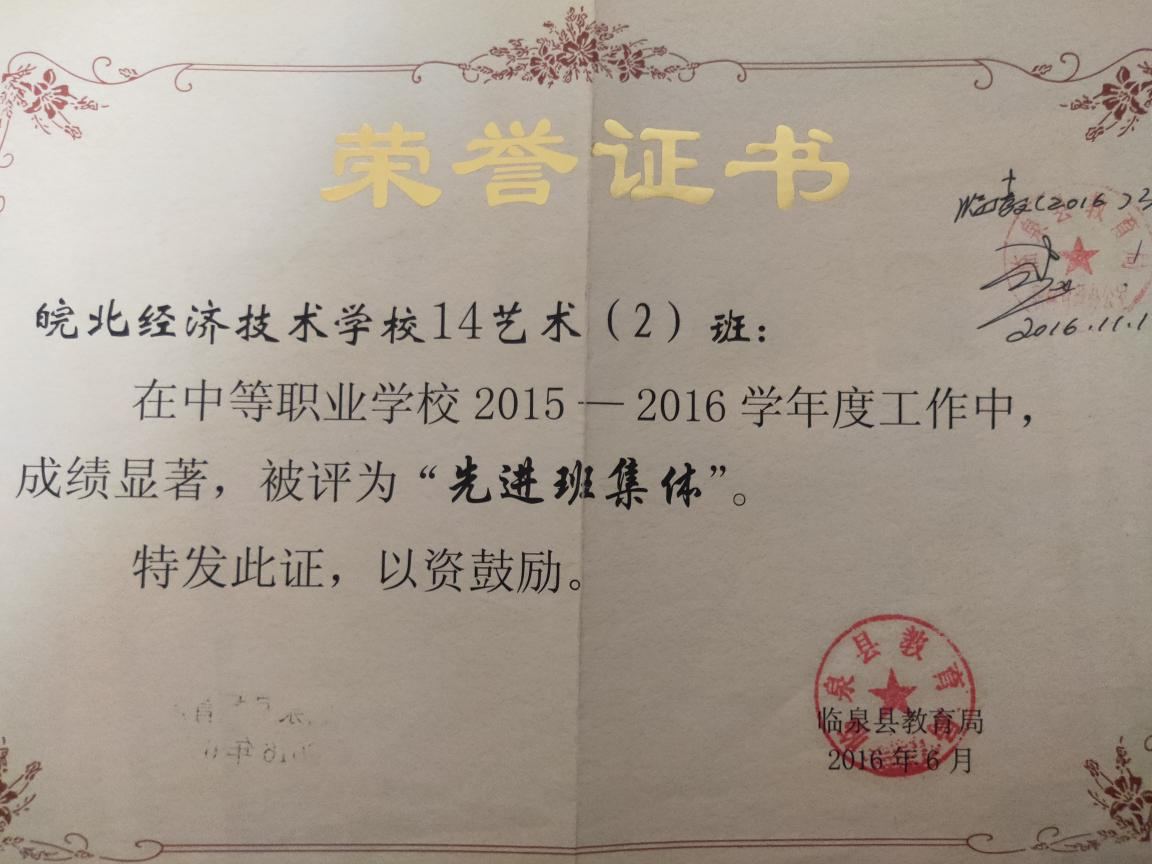 荣誉证书
临教(2016)
2016.11.1
皖北经济技术学校14艺术（2）班：
在中等职业学校2015—2016学年度工作中，
成绩显著，被评为“先进班集体”。
特发此证，以资鼓励。
临泉县教育局
临泉县教育局
2016年6月